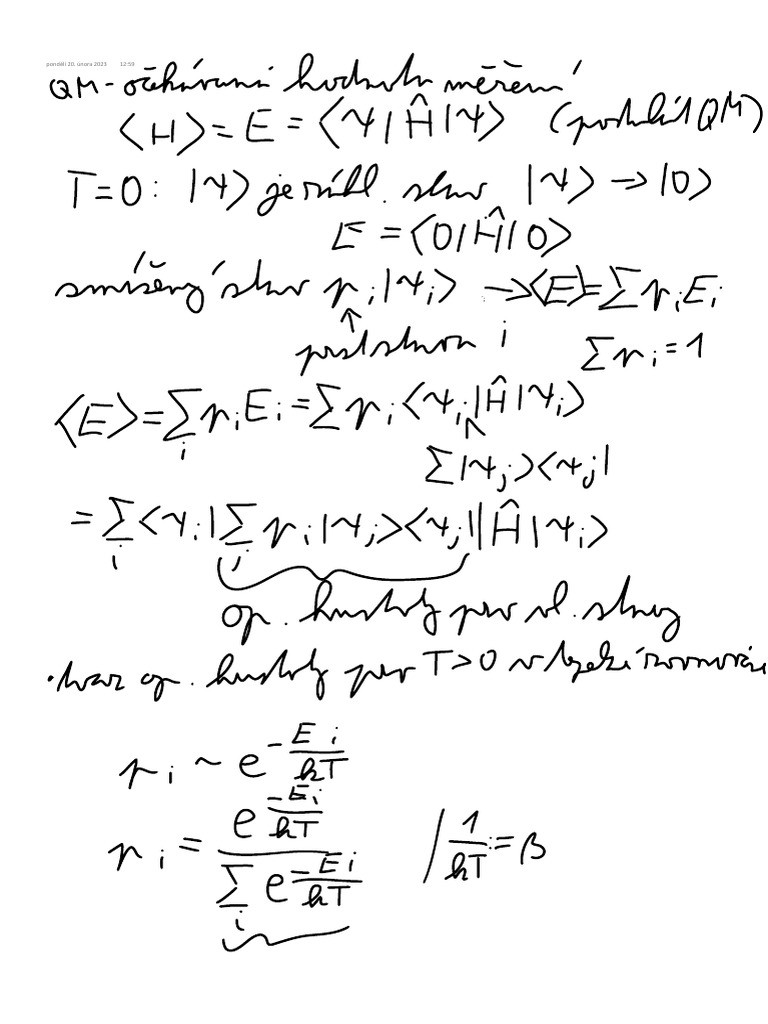 pondělí 20. února 2023 12:59
QM - očekávaná hodnota měření
⟨H⟩ = E = ⟨ψ|Ĥ|ψ⟩ (postulát QM)
T=0: |ψ⟩ je zákl. stav |ψ⟩ → |0⟩
E = ⟨0|Ĥ|0⟩
smíšený stav p_i|ψ_i⟩ → ⟨E⟩ = ∑ p_i E_i
↑
prst stavu i ∑ p_i = 1
⟨E⟩ = ∑_i p_i E_i = ∑ p_i ⟨ψ_i|Ĥ|ψ_i⟩
∑|ψ_j⟩⟨ψ_j|
= ∑_i ⟨ψ_i|∑_j p_i|ψ_j⟩⟨ψ_j||Ĥ|ψ_i⟩
op. hustoty pro vl. stavy
• tvar op. hustoty pro T>0 v tepelné rovnováze
p_i ~ e^{-\frac{E_i}{kT}}
p_i = \frac{e^{-\frac{E_i}{kT}}}{∑_i e^{-\frac{E_i}{kT}}} / \frac{1}{kT} := β